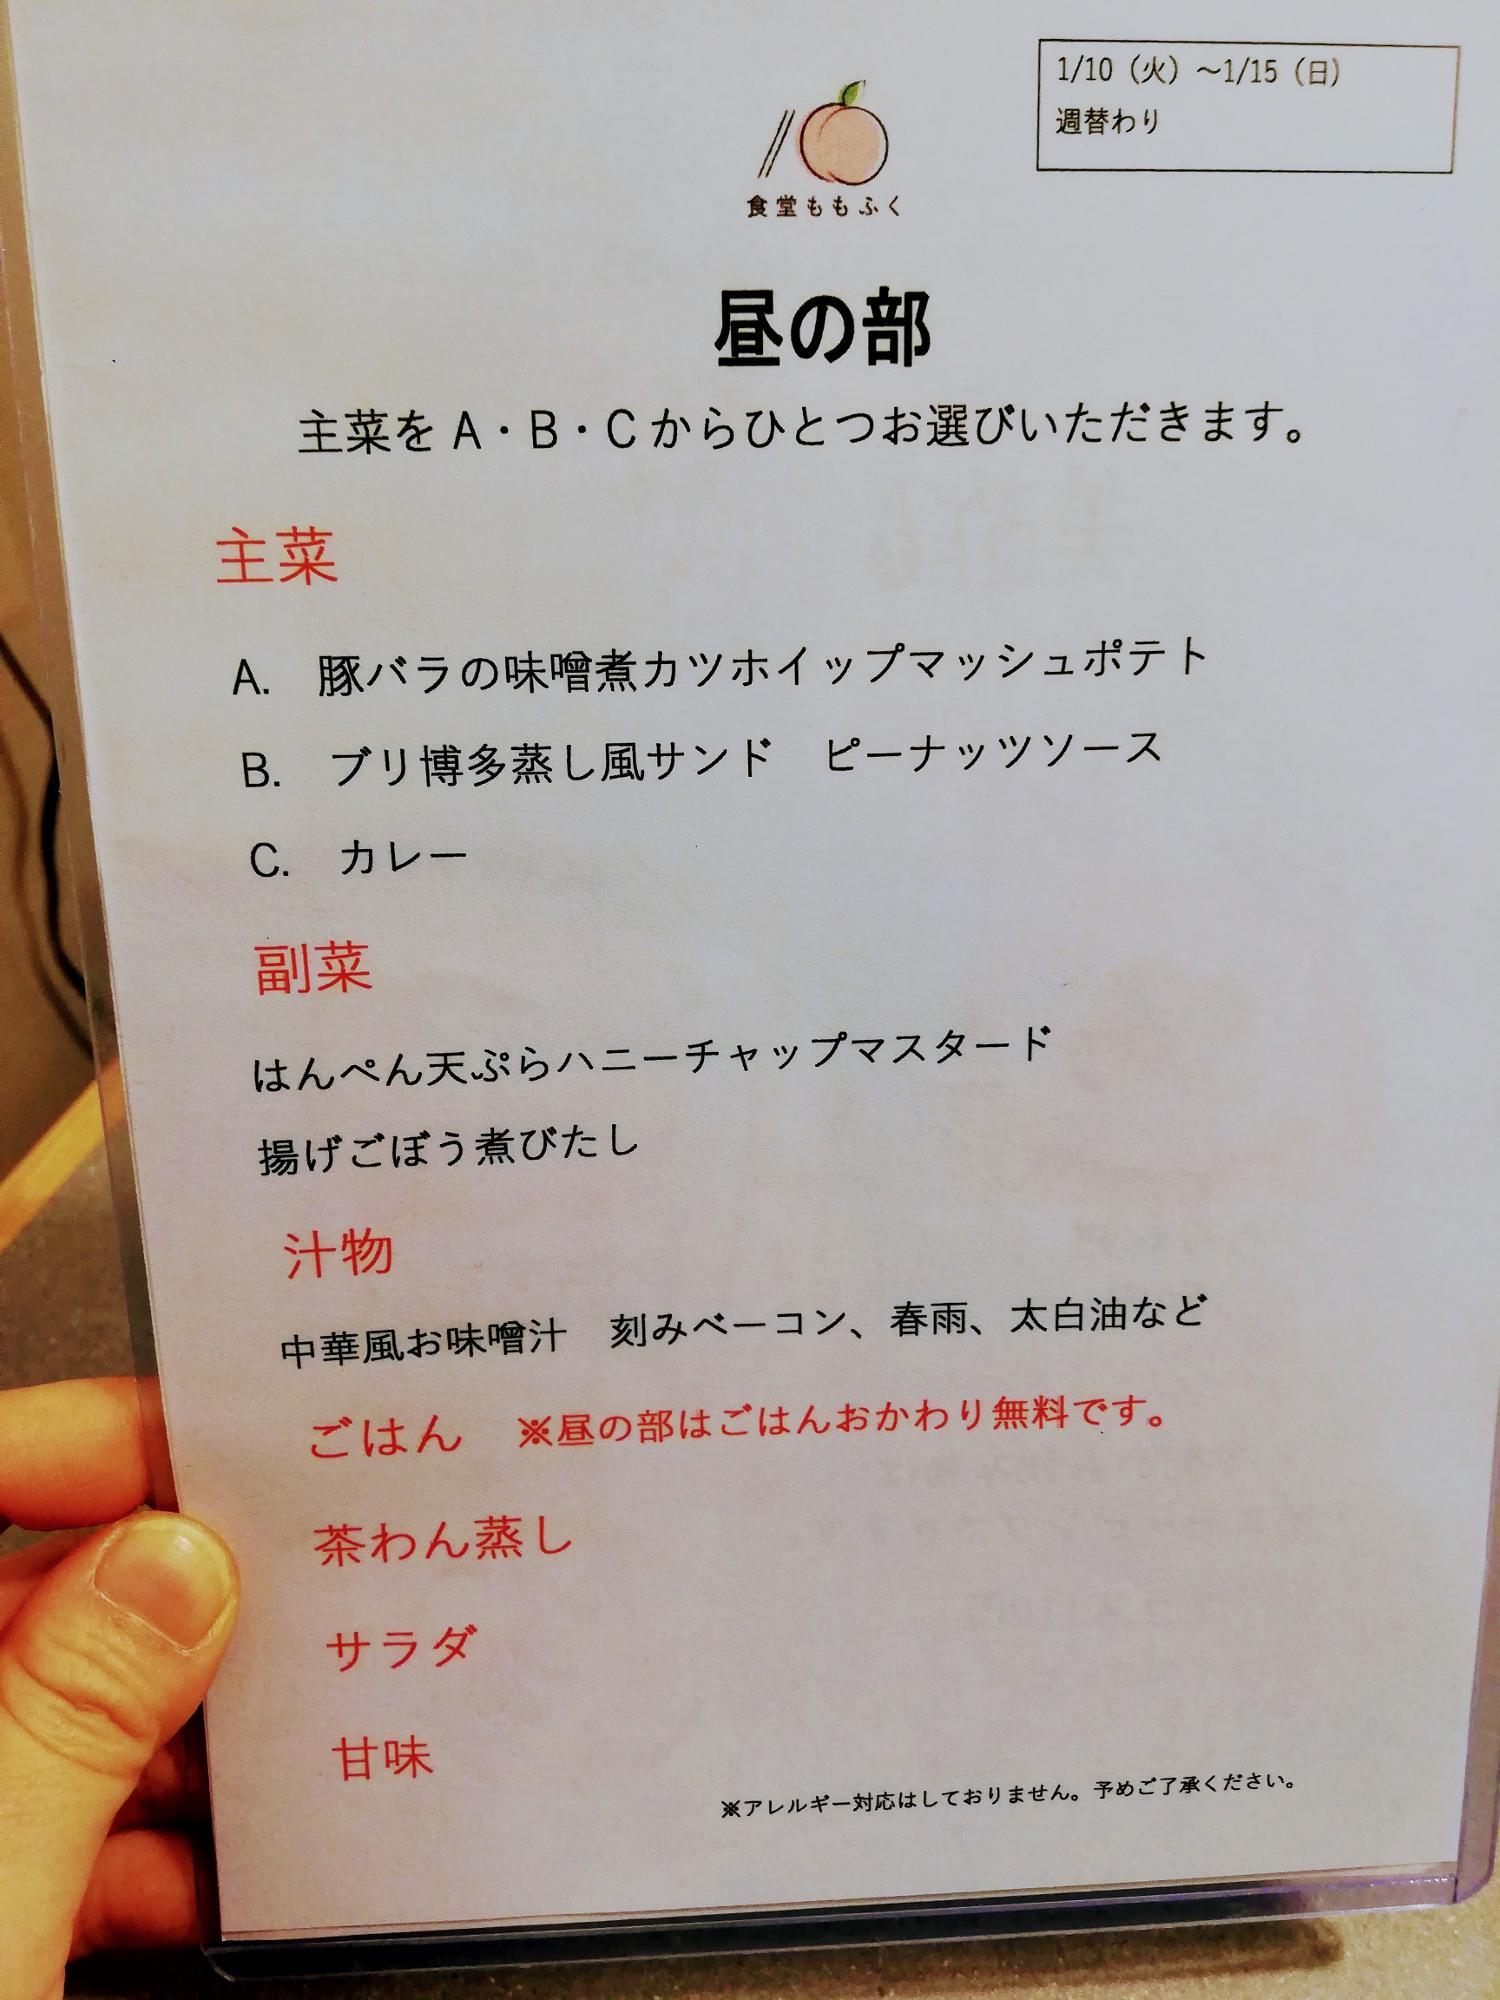 1/10（火）～1/15（日）
週替わり
食堂ももふく
昼の部
主菜をA・B・Cからひとつお選びいただきます。
主菜
A. 豚バラの味噌煮カツホイップマッシュポテト
B. ブリ博多蒸し風サンド　ピーナッツソース
C. カレー
副菜
はんぺん天ぷらハニーチャップマスタード
揚げごぼう煮びたし
汁物
中華風お味噌汁　刻みベーコン、春雨、太白油など
ごはん　※昼の部はごはんおかわり無料です。
茶わん蒸し
サラダ
甘味
※アレルギー対応はしておりません。予めご了承ください。